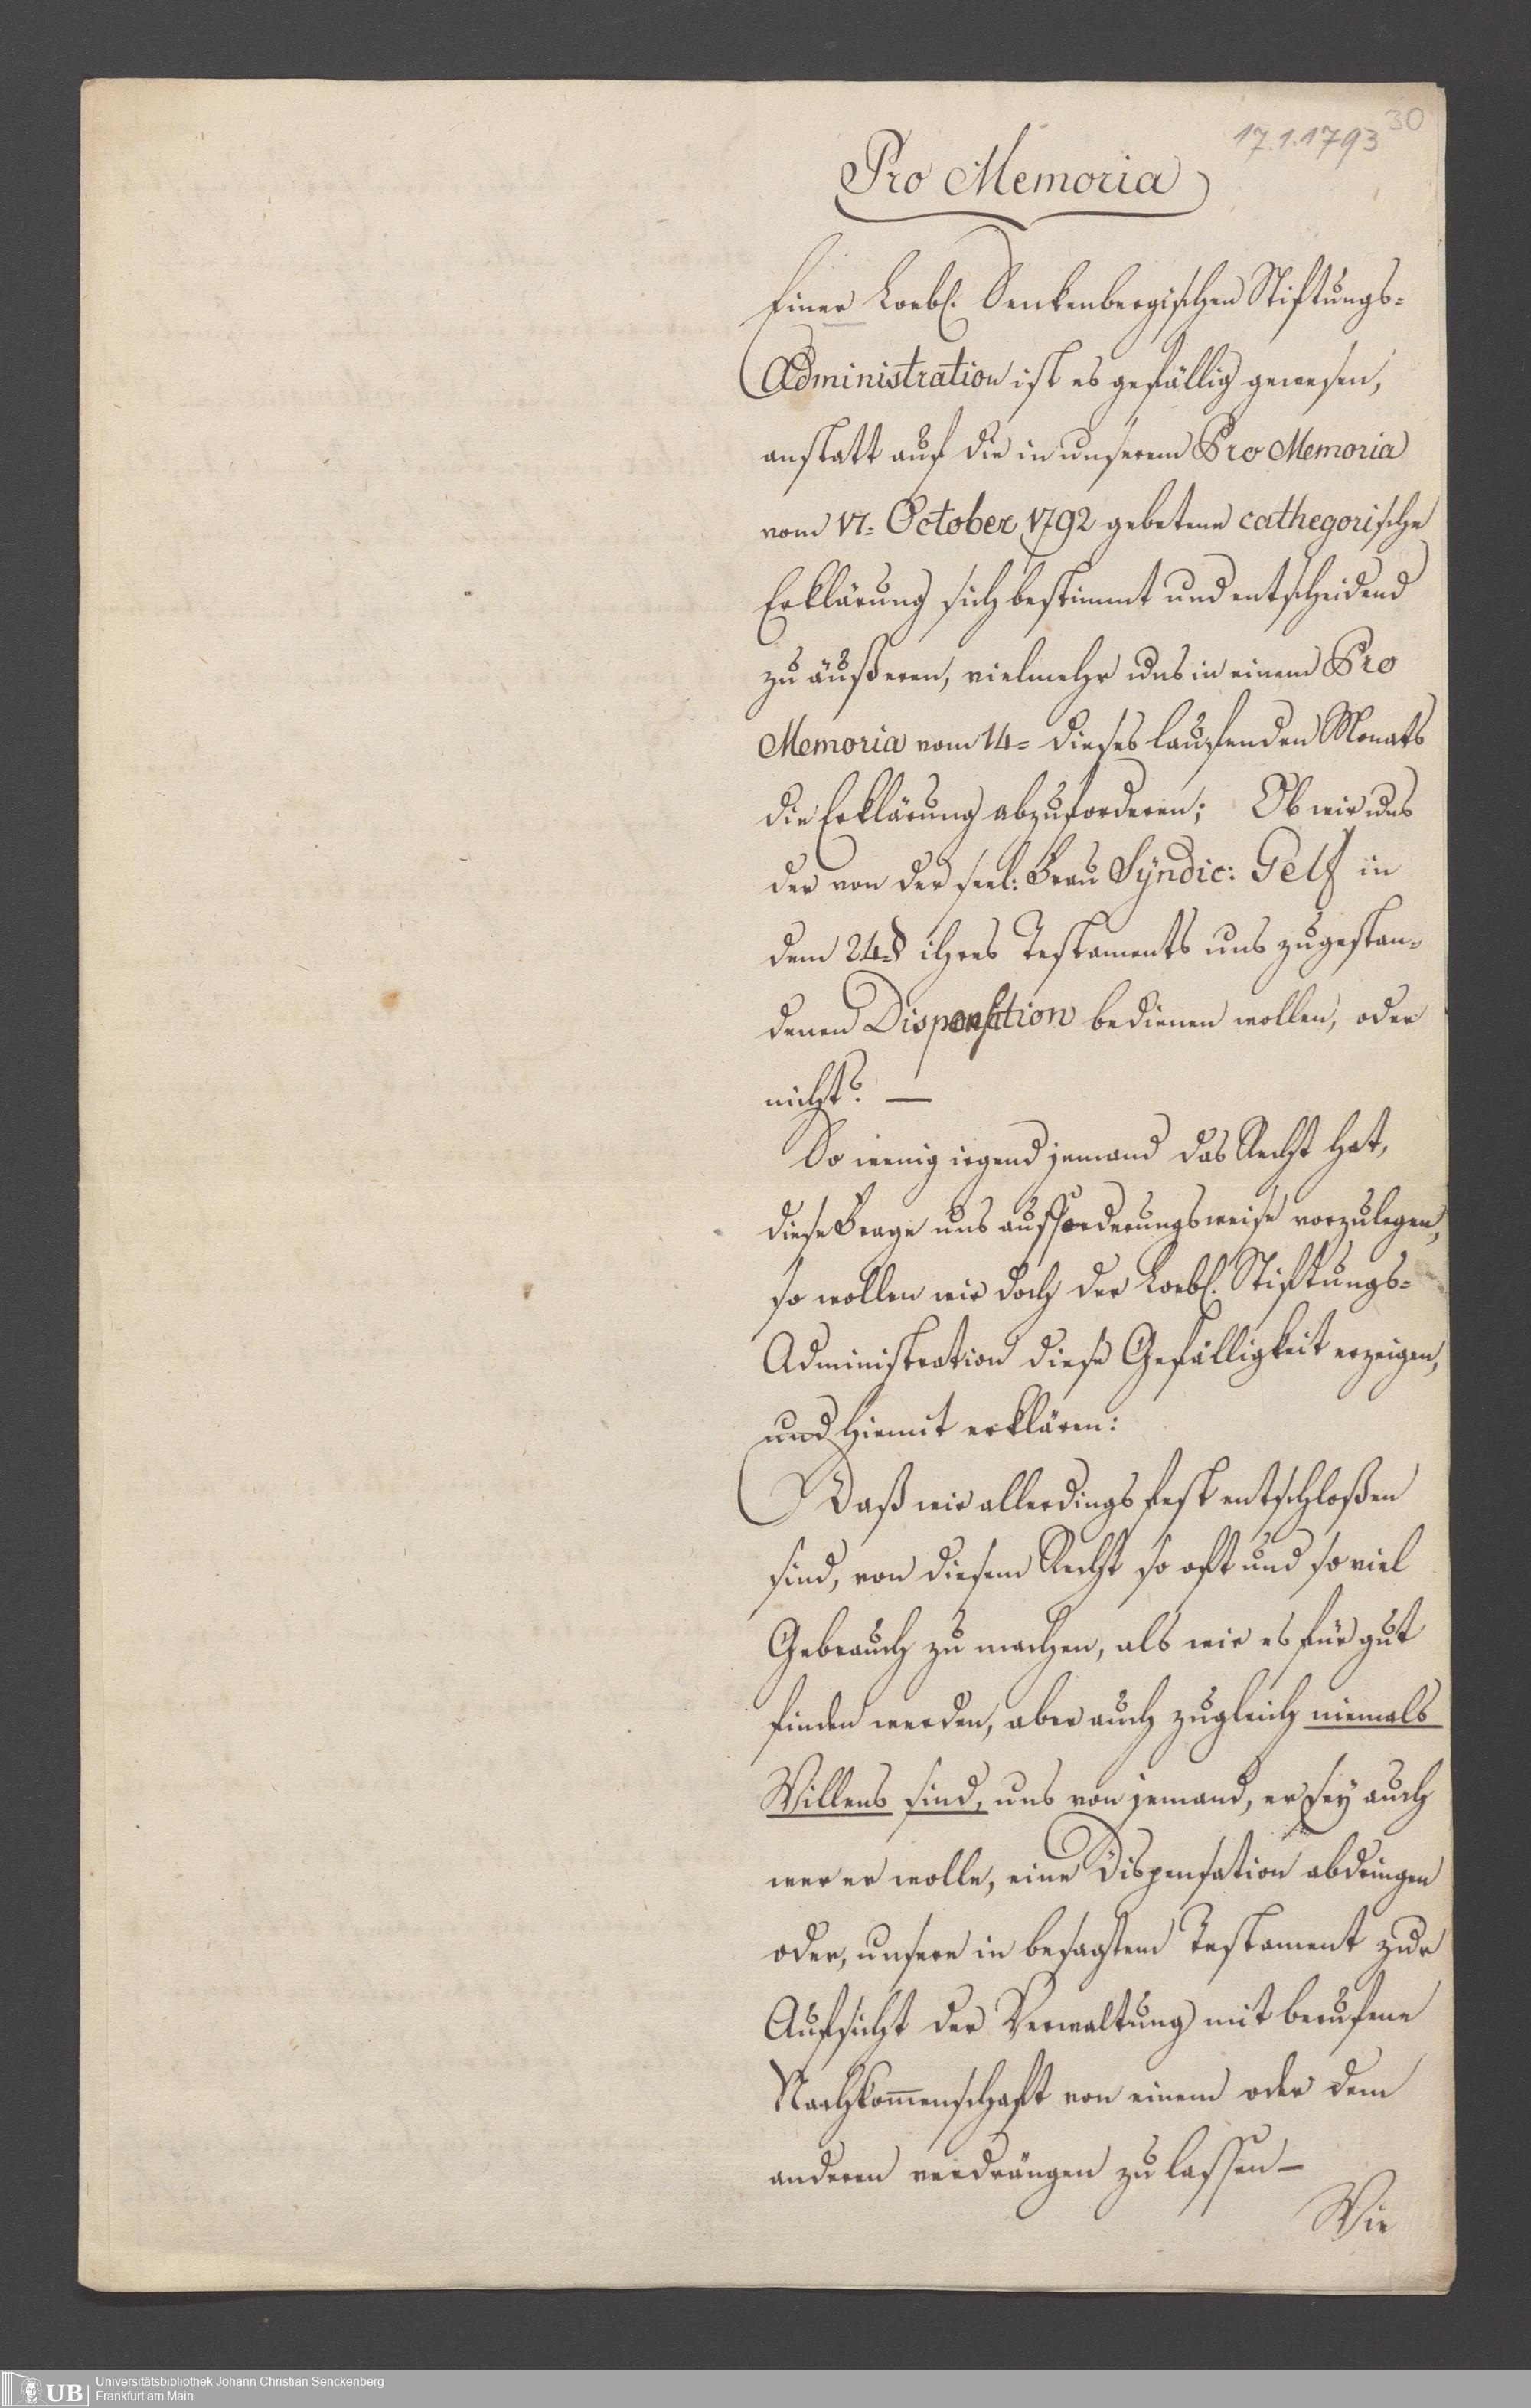 30
17.1.1793
Pro Memoria
Einer Loebl. Senkenbergischen Stiftungs=
Administration ist es gefällig gewesen,
anstatt auf die in unserem Pro Memoria
vom 17= October 1792 gebetene cathegorische
Erklärung sich bestimmt und entscheidend
zu äußeren, vielmehr uns in einem Pro
Memoria vom 14= dieses laufenden Monats
die Erklärung abzuforderen; Ob wir uns
der von der seel: Frau Syndic: Gelf in
dem 24=§ ihres Testaments uns zugestan=
denen Dispensation bedienen wollen, oder
nicht? —
So wenig irgend jemand das Recht hat,
diese Frage uns aufforderungsweise vorzulegen,
so wollen wir doch der Loebl. Stiftungs=
Administration diese Gefälligkeit erzeigen,
und hiemit erklären:
Daß wir allerdings fest entschloßen
sind, von diesem Recht so oft und so viel
Gebrauch zu machen, als wir es für gut
finden werden, aber auch zugleich niemals
Willens sind, uns von jemand, er sey auch
wer er wolle, eine Dispensation abdringen
oder, unsere in besagtem Testament zur
Aufsicht der Verwaltung mit berufene
Nachkom̄enschaft von einem oder dem
anderen verdrängen zu lassen —
Wie
UB
Universitätsbibliothek Johann Christian Senckenberg
Frankfurt am Main